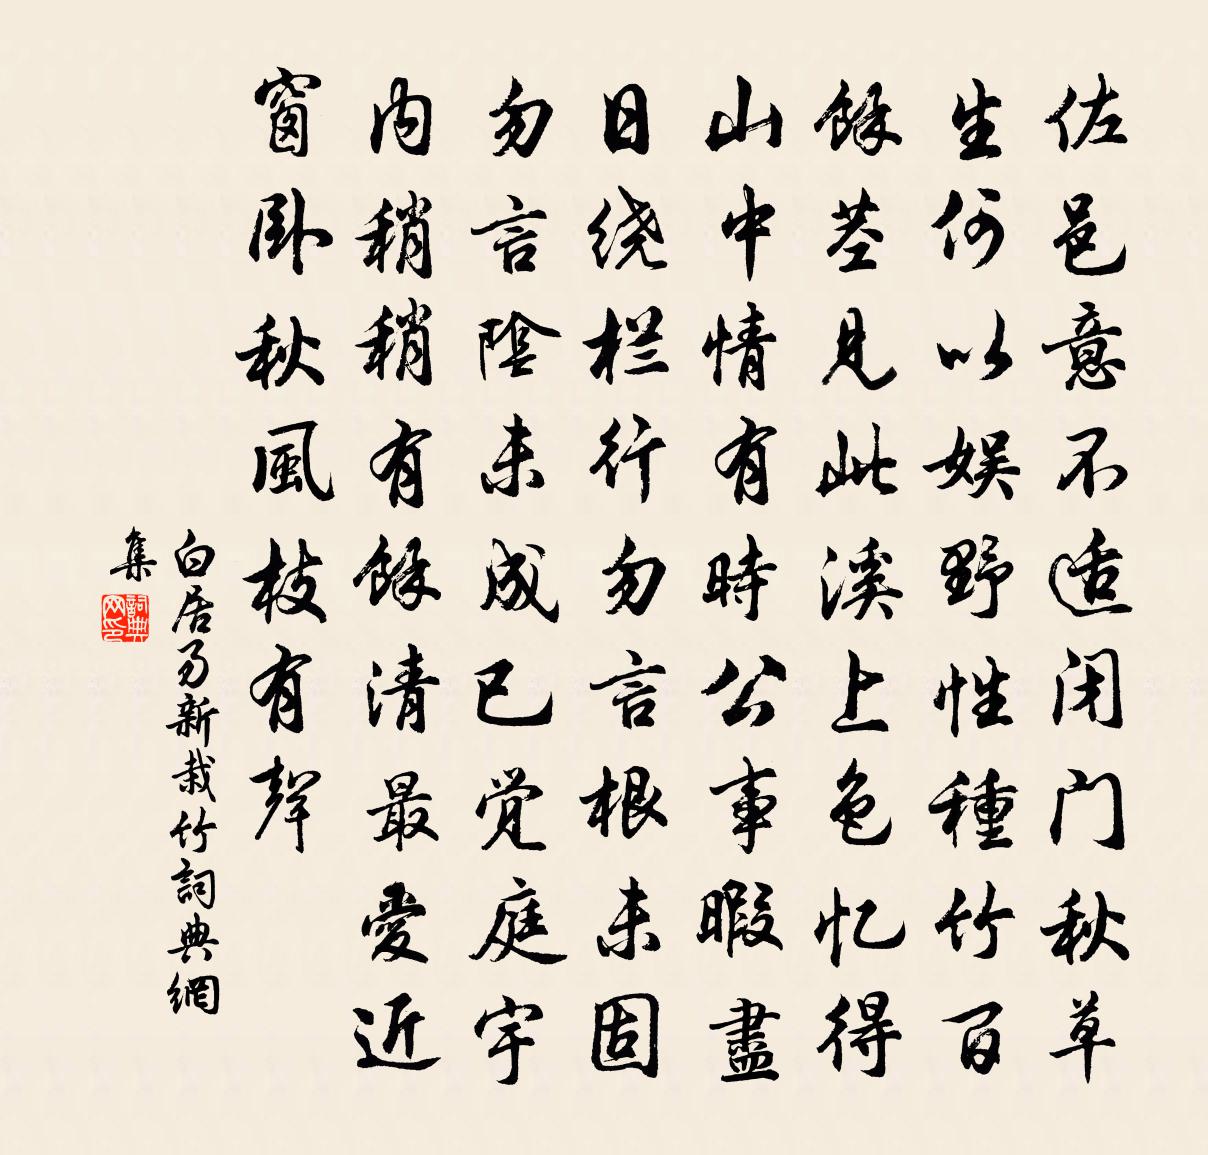 佐邑意不适闭门秋草
生何以娱野性種竹百
餘茎見此溪上色忆得
山中情有時公事暇盡
日绕栏行勿言根未固
勿言陰未成已觉庭宇
内稍稍有餘清最愛近
窗卧秋風枝有聲
白居易新栽竹詞典網
集
詞典网印